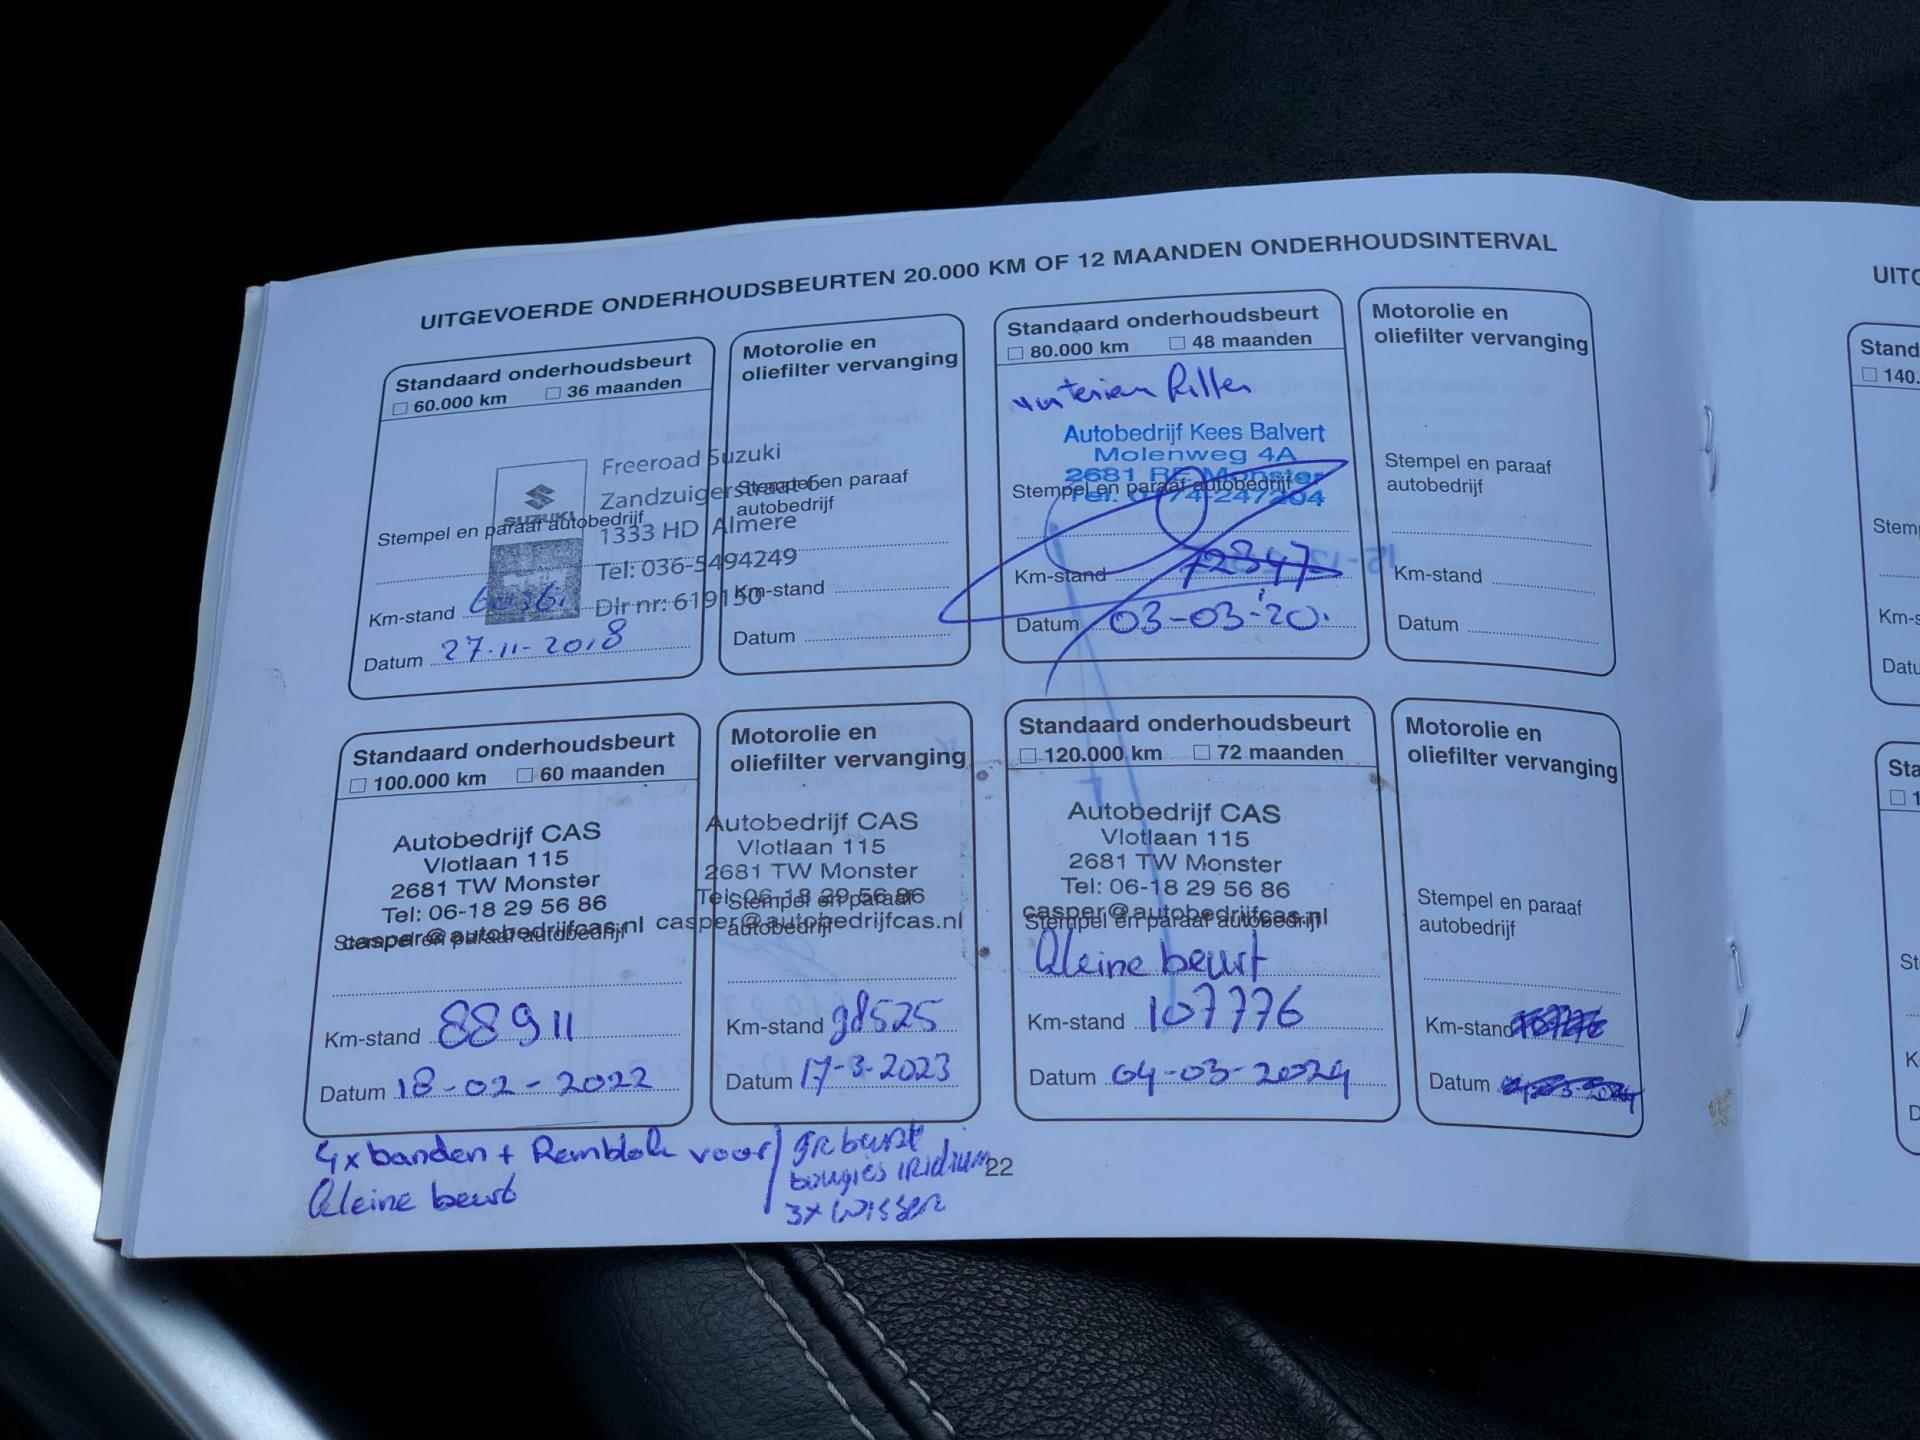 UITGEVOERDE ONDERHOUDSBEURTEN 20.000 KM OF 12 MAANDEN ONDERHOUDSINTERVAL
Standaard onderhoudsbeurt
60.000 km 36 maanden
Freeroad Suzuki
Zandzuigerstraat 6
SUZUKI
1333 HD Almere
Tel: 036-5494249
Dlr nr: 619150
Stempel en paraaf autobedrijf
Km-stand
Datum 27-11-2018
Motorolie en
oliefilter vervanging
Stempel en paraaf
autobedrijf
Km-stand
Datum
Standaard onderhoudsbeurt
80.000 km 48 maanden
Autobedrijf Kees Balvert
Molenweg 4A
2681 Monster
Tel. 0174-247204
Stempel en paraaf autobedrijf
Km-stand 72847
Datum 03-03-'20.
Motorolie en
oliefilter vervanging
Stempel en paraaf
autobedrijf
Km-stand
Datum
Standaard onderhoudsbeurt
100.000 km 60 maanden
Autobedrijf CAS
Vlotlaan 115
2681 TW Monster
Tel: 06-18 29 56 86
casper@autobedrijfcas.nl
Stempel en paraaf autobedrijf
Km-stand 88911
Datum 18-02-2022
Motorolie en
oliefilter vervanging
Autobedrijf CAS
Vlotlaan 115
2681 TW Monster
Tel: 06-18 29 56 86
casper@autobedrijfcas.nl
Stempel en paraaf
autobedrijf
Km-stand 98525
Datum 17-3-2023
Standaard onderhoudsbeurt
120.000 km 72 maanden
Autobedrijf CAS
Vlotlaan 115
2681 TW Monster
Tel: 06-18 29 56 86
casper@autobedrijfcas.nl
Stempel en paraaf autobedrijf
Kleine beurt
Km-stand 107776
Datum 04-03-2024
Motorolie en
oliefilter vervanging
Stempel en paraaf
autobedrijf
Km-stand
Datum
4x banden + Remblok voor
Kleine beurt
gr beurt
bougies iridium
3x wissen
22
UITG
Stand
140.
Stemp
Km-s
Datu
Sta
1
St
K
D